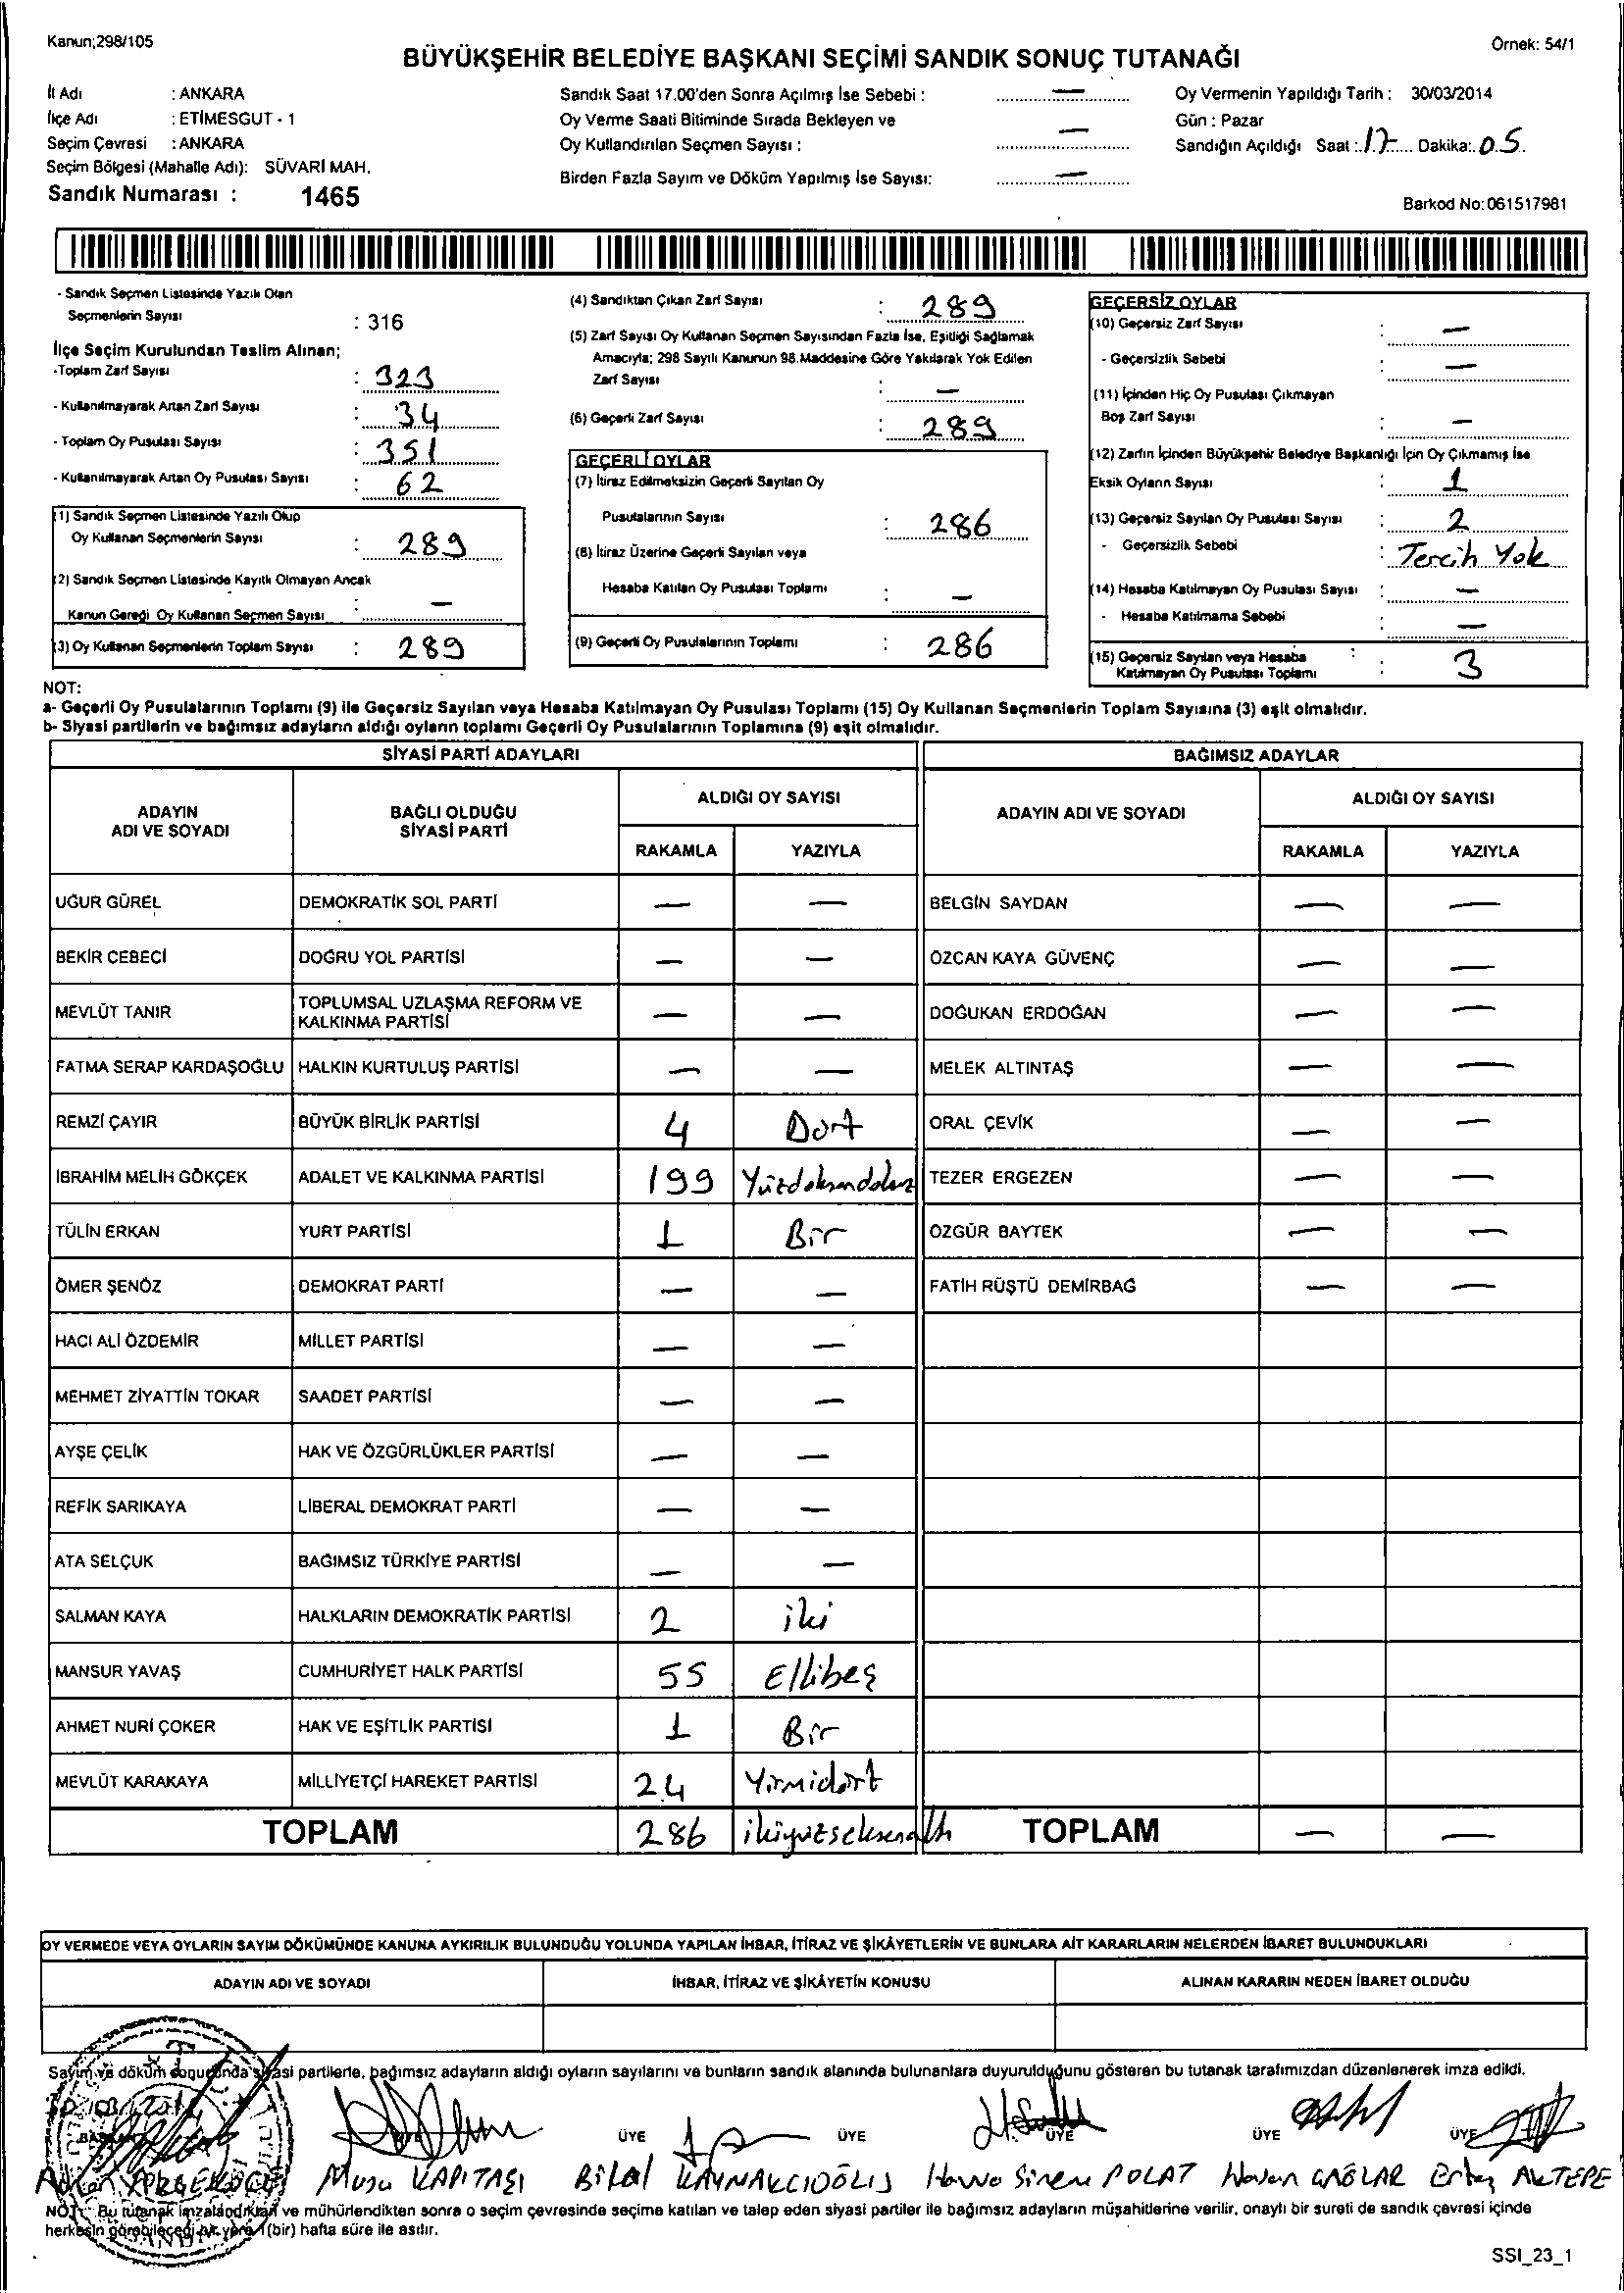 Kanun;298/105
Örnek: 54/1
BÜYÜKŞEHİR BELEDİYE BAŞKANI SEÇİMİ SANDIK SONUÇ TUTANAĞI
İl Adı : ANKARA
İlçe Adı : ETİMESGUT - 1
Seçim Çevresi : ANKARA
Seçim Bölgesi (Mahalle Adı): SÜVARİ MAH.
Sandık Numarası : 1465
Sandık Saat 17.00'den Sonra Açılmış İse Sebebi : —
Oy Verme Saati Bitiminde Sırada Bekleyen ve
Oy Kullandırılan Seçmen Sayısı : —
Birden Fazla Sayım ve Döküm Yapılmış İse Sayısı: —
Oy Vermenin Yapıldığı Tarih : 30/03/2014
Gün : Pazar
Sandığın Açıldığı Saat : 17 Dakika: 05
Barkod No: 061517981
- Sandık Seçmen Listesinde Yazılı Olan
Seçmenlerin Sayısı : 316
İlçe Seçim Kurulundan Teslim Alınan;
-Toplam Zarf Sayısı : 323
- Kullanılmayarak Artan Zarf Sayısı : 34
- Toplam Oy Pusulası Sayısı : 351
- Kullanılmayarak Artan Oy Pusulası Sayısı : 62
(1) Sandık Seçmen Listesinde Yazılı Olup
Oy Kullanan Seçmenlerin Sayısı : 289
(2) Sandık Seçmen Listesinde Kayıtlı Olmayan Ancak
Kanun Gereği Oy Kullanan Seçmen Sayısı : —
(3) Oy Kullanan Seçmenlerin Toplam Sayısı : 289
(4) Sandıktan Çıkan Zarf Sayısı : 289
(5) Zarf Sayısı Oy Kullanan Seçmen Sayısından Fazla İse, Eşitliği Sağlamak
Amacıyla; 298 Sayılı Kanunun 98.Maddesine Göre Yakılarak Yok Edilen
Zarf Sayısı : —
(6) Geçerli Zarf Sayısı : 289
GEÇERLİ OYLAR
(7) İtiraz Edilmeksizin Geçerli Sayılan Oy
Pusulalarının Sayısı : 286
(8) İtiraz Üzerine Geçerli Sayılan veya
Hesaba Katılan Oy Pusulası Toplamı : —
(9) Geçerli Oy Pusulalarının Toplamı : 286
GEÇERSİZ OYLAR
(10) Geçersiz Zarf Sayısı : —
- Geçersizlik Sebebi : —
(11) İçinden Hiç Oy Pusulası Çıkmayan
Boş Zarf Sayısı : —
(12) Zarfın İçinden Büyükşehir Belediye Başkanlığı İçin Oy Çıkmamış İse
Eksik Oyların Sayısı : 1
(13) Geçersiz Sayılan Oy Pusulası Sayısı : 2
- Geçersizlik Sebebi : Tercih Yok
(14) Hesaba Katılmayan Oy Pusulası Sayısı : —
- Hesaba Katılmama Sebebi : —
(15) Geçersiz Sayılan veya Hesaba
Katılmayan Oy Pusulası Toplamı : 3
NOT:
a- Geçerli Oy Pusulalarının Toplamı (9) ile Geçersiz Sayılan veya Hesaba Katılmayan Oy Pusulası Toplamı (15) Oy Kullanan Seçmenlerin Toplam Sayısına (3) eşit olmalıdır.
b- Siyasi partilerin ve bağımsız adayların aldığı oyların toplamı Geçerli Oy Pusulalarının Toplamına (9) eşit olmalıdır.
SİYASİ PARTİ ADAYLARI BAĞIMSIZ ADAYLAR
ADAYIN ADI VE SOYADI BAĞLI OLDUĞU SİYASİ PARTİ ALDIĞI OY SAYISI ADAYIN ADI VE SOYADI ALDIĞI OY SAYISI
RAKAMLA YAZIYLA RAKAMLA YAZIYLA
UĞUR GÜREL DEMOKRATİK SOL PARTİ — — BELGİN SAYDAN — —
BEKİR CEBECİ DOĞRU YOL PARTİSİ — — ÖZCAN KAYA GÜVENÇ — —
MEVLÜT TANIR TOPLUMSAL UZLAŞMA REFORM VE KALKINMA PARTİSİ — — DOĞUKAN ERDOĞAN — —
FATMA SERAP KARDAŞOĞLU HALKIN KURTULUŞ PARTİSİ — — MELEK ALTINTAŞ — —
REMZİ ÇAYIR BÜYÜK BİRLİK PARTİSİ 4 Dört ORAL ÇEVİK — —
İBRAHİM MELİH GÖKÇEK ADALET VE KALKINMA PARTİSİ 199 Yüzdoksandokuz TEZER ERGEZEN — —
TÜLİN ERKAN YURT PARTİSİ 1 Bir ÖZGÜR BAYTEK — —
ÖMER ŞENÖZ DEMOKRAT PARTİ — — FATİH RÜŞTÜ DEMİRBAĞ — —
HACI ALİ ÖZDEMİR MİLLET PARTİSİ — —
MEHMET ZİYATTİN TOKAR SAADET PARTİSİ — —
AYŞE ÇELİK HAK VE ÖZGÜRLÜKLER PARTİSİ — —
REFİK SARIKAYA LİBERAL DEMOKRAT PARTİ — —
ATA SELÇUK BAĞIMSIZ TÜRKİYE PARTİSİ — —
SALMAN KAYA HALKLARIN DEMOKRATİK PARTİSİ 2 iki
MANSUR YAVAŞ CUMHURİYET HALK PARTİSİ 55 Ellibeş
AHMET NURİ ÇOKER HAK VE EŞİTLİK PARTİSİ 1 Bir
MEVLÜT KARAKAYA MİLLİYETÇİ HAREKET PARTİSİ 24 Yirmidört
TOPLAM 286 ikiyüzseksenaltı TOPLAM — —
OY VERMEDE VEYA OYLARIN SAYIM DÖKÜMÜNDE KANUNA AYKIRILIK BULUNDUĞU YOLUNDA YAPILAN İHBAR, İTİRAZ VE ŞİKÂYETLERİN VE BUNLARA AİT KARARLARIN NELERDEN İBARET BULUNDUKLARI
ADAYIN ADI VE SOYADI İHBAR, İTİRAZ VE ŞİKÂYETİN KONUSU ALINAN KARARIN NEDEN İBARET OLDUĞU
Sayım ve döküm sonucunda siyasi partilerle, bağımsız adayların aldığı oyların sayılarını ve bunların sandık alanında bulunanlara duyurulduğunu gösteren bu tutanak tarafımızdan düzenlenerek imza edildi.
ÜYE ÜYE ÜYE ÜYE ÜYE
Musa KAPITAŞI Bilal KAYNAKCIOĞLU Havva Sinem POLAT Hasan ÇAĞLAR AKTEPE
NOT: Bu tutanak imzalandıktan ve mühürlendikten sonra o seçim çevresinde seçime katılan ve talep eden siyasi partiler ile bağımsız adayların müşahitlerine verilir, onaylı bir sureti de sandık çevresi içinde
herkesin görebileceği bir yere 1(bir) hafta süre ile asılır.
SSI_23_1